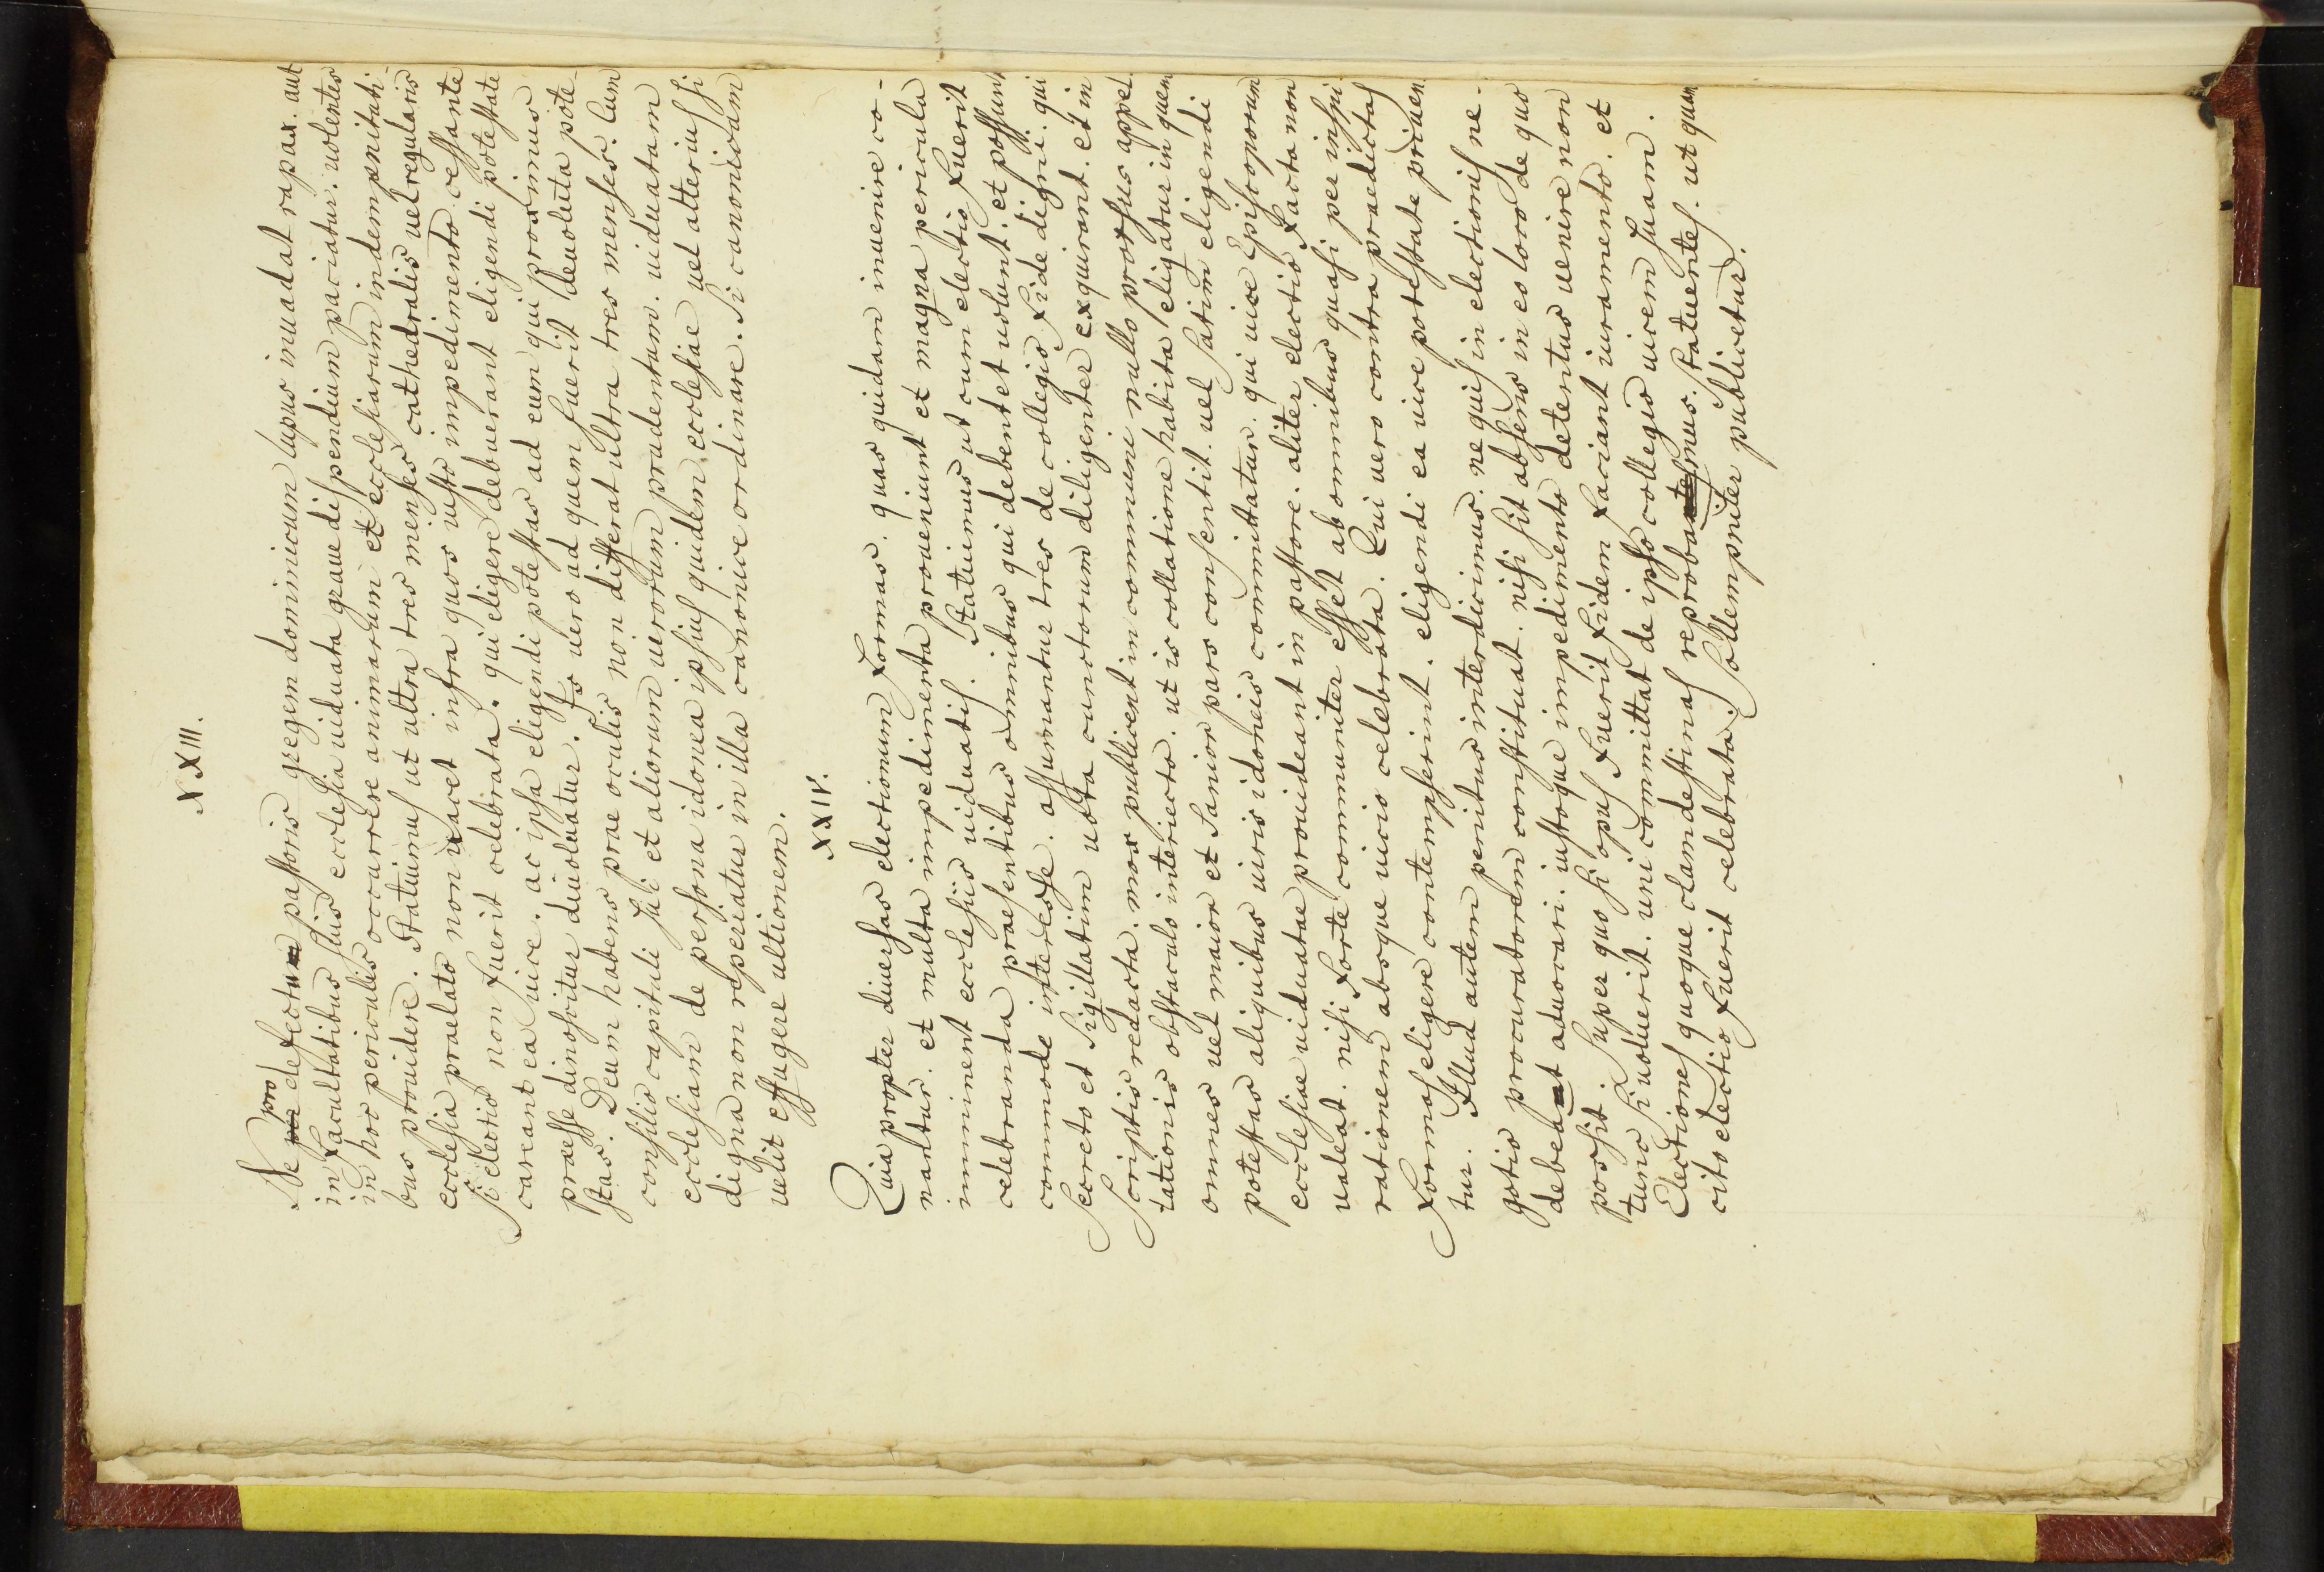 XXIII.
Ne per pro defectum pastoris gregem dominicum lupus inuadat rapax. aut
in facultatibus suis ecclesia uiduata graue dispendium paciatur. uolentes
in hoc periculis occurrere animarum et ecclesiarum indempnitati-
bus prouidere. Statuimus ut ultra tres menses cathedralis uel regularis
ecclesia praelato non uacet infra quos iusto impedimento cessante
Si electio non fuerit celebrata. qui eligere debuerant eligendi potestate
careant ea uice. ac ipsa eligendi potestas ad eum qui proximus
praeesse dinoscitur diuoluatur. Is uero ad quem fuerit deuoluta pote-
stas. Deum habens prae oculis non differat ultra tres menses. Cum
consilio capituli sui et aliorum uirorum prudentum. uiduatam
ecclesiam de persona idonea ipsius quidem ecclesiae uel alterius si
digna non reperiatur in illa canonice ordinare. Si canonicam
uelit effugere ultionem.
XXIV.
Quia propter diuersas electionum formas. quas quidam inuenire co-
nantur. et multa impedimenta proueniunt et magna pericula
imminent ecclesiis uiduatis. Statuimus ut cum electio fuerit
celebranda praesentibus omnibus qui debent et uolunt. et possunt
commode interesse. assumantur tres de collegio fide digni. qui
Secreto et Sigillatim uota cunctorum diligenter exquirant. et in
Scriptis redacta. mox publicent in communi nullo prorsus appel-
tationis obstaculo interiecto. ut is collatione habita eligatur in quem
omnes uel maior et Sanior pars consentit. uel Saltim eligendi
potestas aliquibus uiris idoneis committatur. qui uice Episcoporum
ecclesiae uiduatae prouideant in pastore. aliter electio facta non
ualeat. nisi forte communiter esset ab omnibus quasi per inspi-
rationem absque uicio celebrata. Qui uero contra praedictas
formas eligere contempserint. eligendi ea uice potestate priuen-
tur. Illud autem penitus interdicimus. ne quis in electionis ne-
gotio procuratorem constituat. nisi sit absens in eo loco de quo
debeat aduocari. iustoque impedimento detentus uenire non
possit. Super quo si opus fuerit fidem faciant iuramento. et
tunc si uoluerit. uni committat de ipso collegio uicem suam.
Electiones quoque clamdestinas reprobamus. Statuentes. ut quam
cito electio fuerit celebrata. Sollempniter publicetur.